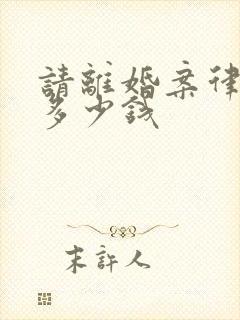 請離婚案律
多少錢
末許人